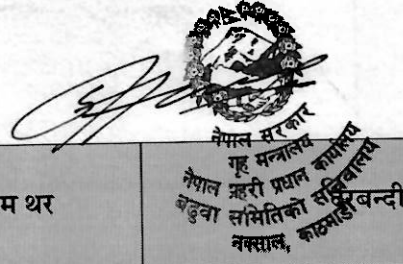 नेपाल सरकार
गृह मन्त्रालय
नेपाल प्रहरी प्रधान कार्यालय
बढुवा समितिको सचिवालय
नक्साल, काठमाडौं
म थर
रबन्दी